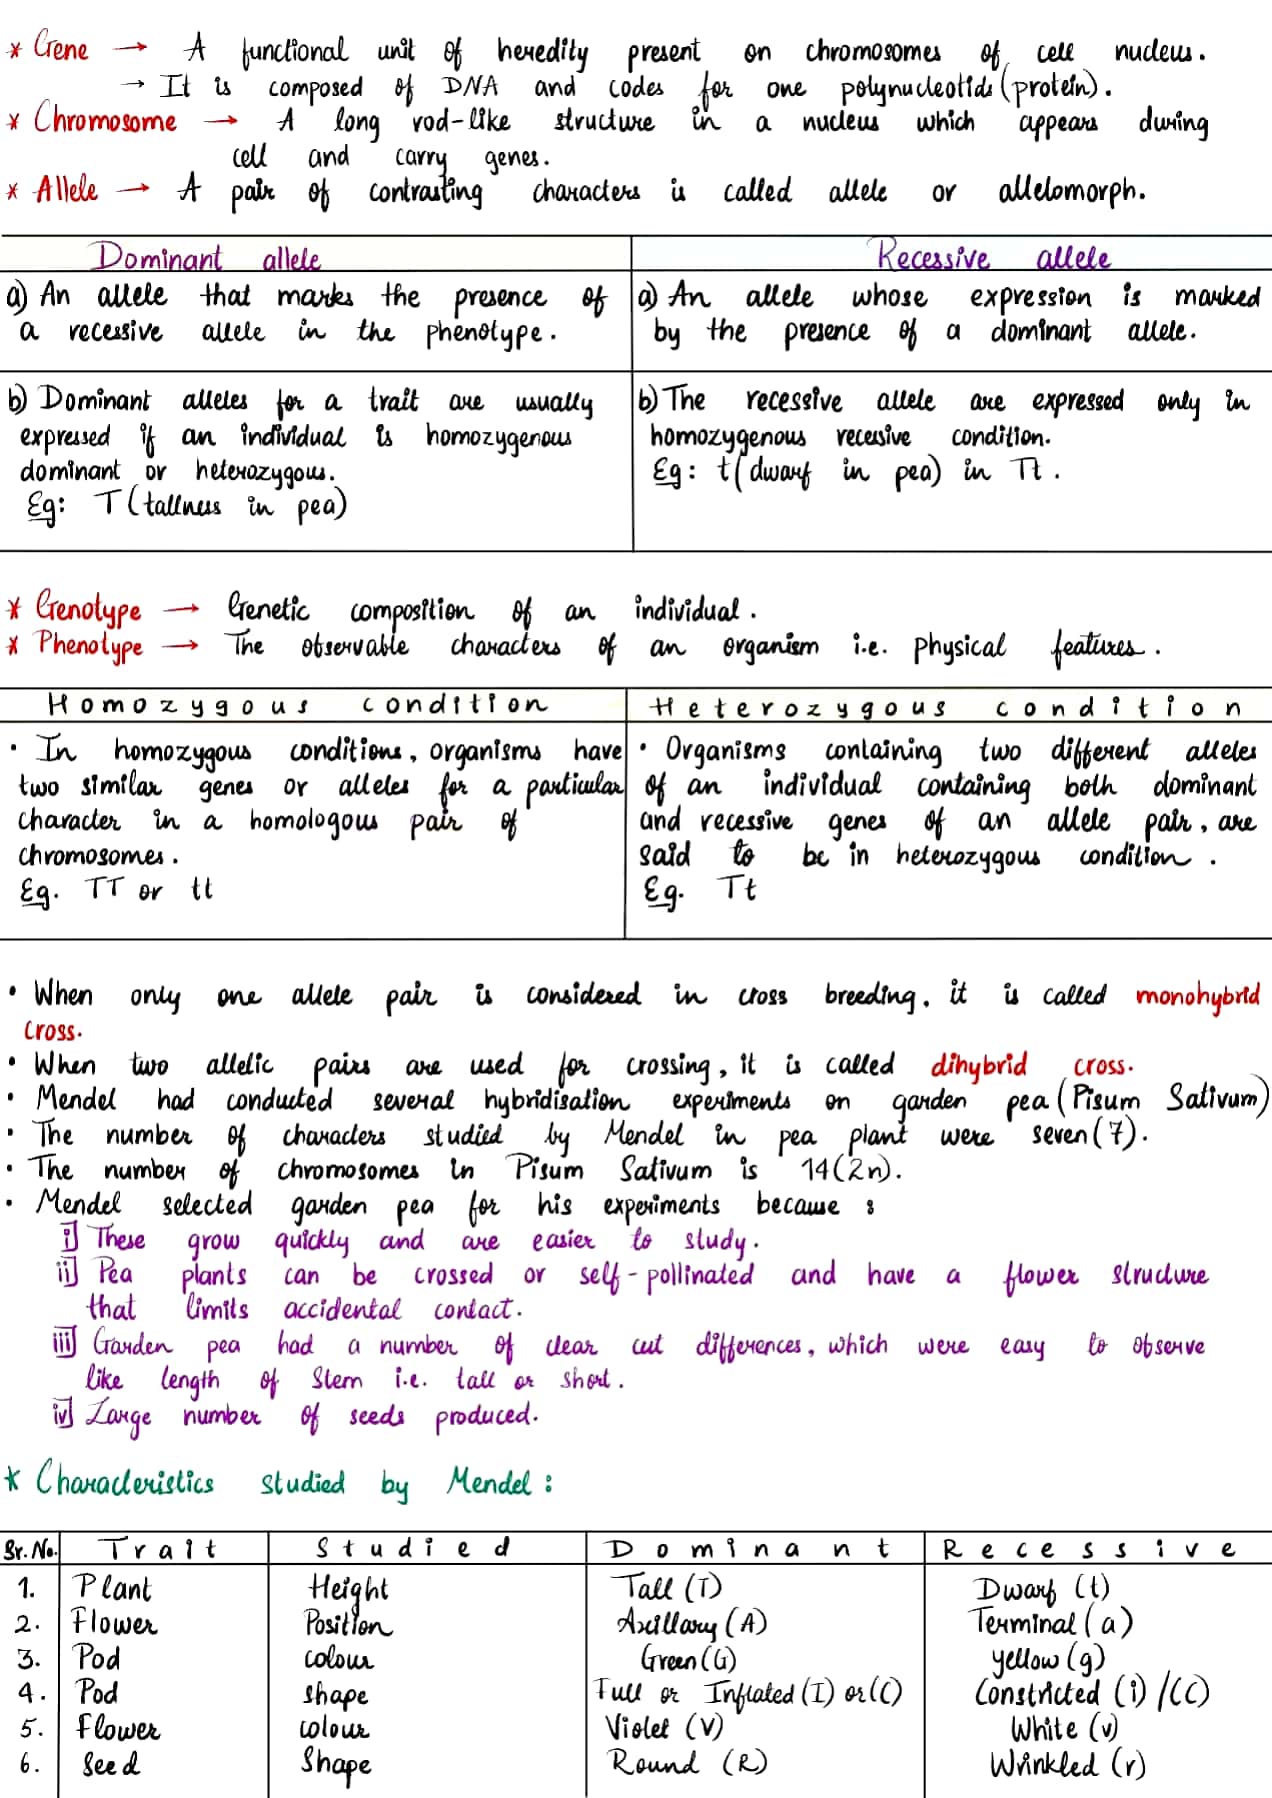 * Gene → A functional unit of heredity present on chromosomes of cell nucleus.
→ It is composed of DNA and codes for one polynucleotide (protein).
* Chromosome → A long rod-like structure in a nucleus which appears during
cell and carry genes.
* Allele → A pair of contrasting characters is called allele or allelomorph.
Dominant allele
a) An allele that marks the presence of
a recessive allele in the phenotype.
b) Dominant alleles for a trait are usually
expressed if an individual is homozygenous
dominant or heterozygous.
Eg: T (tallness in pea)
Recessive allele
a) An allele whose expression is marked
by the presence of a dominant allele.
b) The recessive allele are expressed only in
homozygenous recessive condition.
Eg: t (dwarf in pea) in Tt.
* Genotype → Genetic composition of an individual.
* Phenotype → The observable characters of an organism i.e. physical features.
Homozygous condition
• In homozygous conditions, organisms have
two similar genes or alleles for a particular
character in a homologous pair of
chromosomes.
Eg. TT or tt
Heterozygous condition
• Organisms containing two different alleles
of an individual containing both dominant
and recessive genes of an allele pair, are
said to be in heterozygous condition.
Eg. Tt
• When only one allele pair is considered in cross breeding, it is called monohybrid
cross.
• When two allelic pairs are used for crossing, it is called dihybrid cross.
• Mendel had conducted several hybridisation experiments on garden pea (Pisum Sativum)
• The number of characters studied by Mendel in pea plant were seven (7).
• The number of chromosomes in Pisum Sativum is 14 (2n).
• Mendel selected garden pea for his experiments because :
i] These grow quickly and are easier to study.
ii] Pea plants can be crossed or self-pollinated and have a flower structure
that limits accidental contact.
iii] Garden pea had a number of clear cut differences, which were easy to observe
like length of Stem i.e. tall or short.
iv] Large number of seeds produced.
* Characteristics studied by Mendel :
Sr. No. Trait Studied Dominant Recessive
1. Plant Height Tall (T) Dwarf (t)
2. Flower Position Axillary (A) Terminal (a)
3. Pod colour Green (G) yellow (g)
4. Pod shape Full or Inflated (I) or (C) Constricted (i) / (C)
5. Flower colour Violet (V) White (v)
6. Seed Shape Round (R) Wrinkled (r)